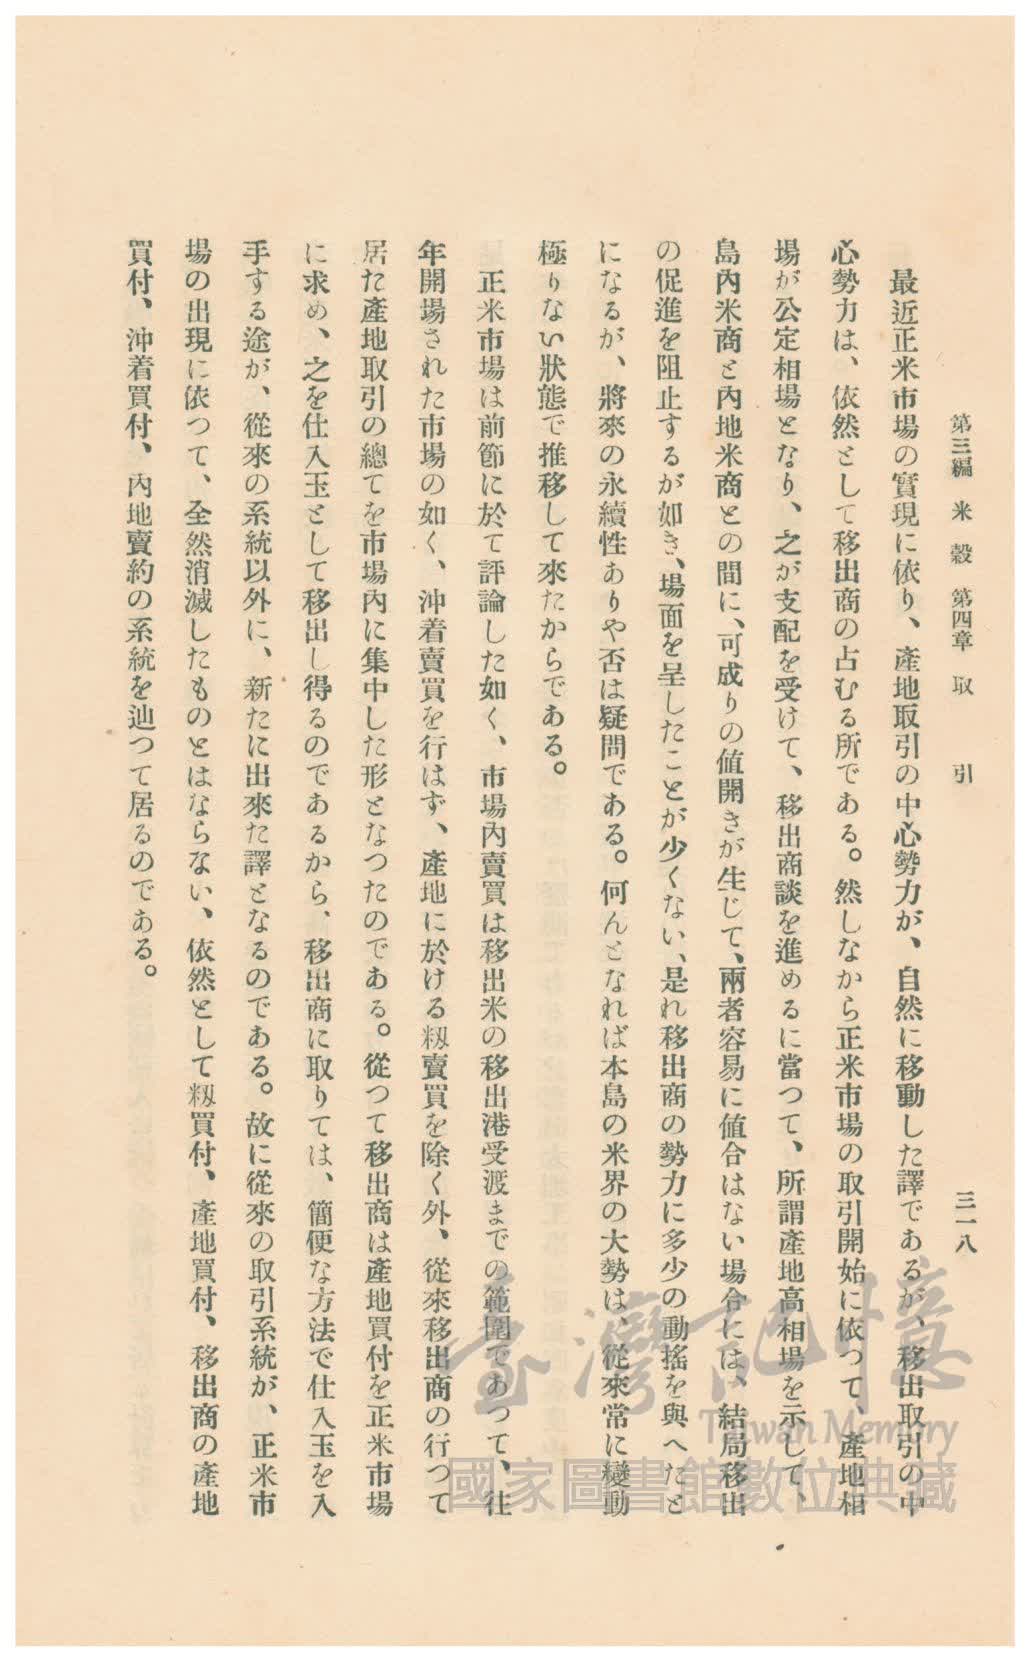 第三編　米　穀　第四章　取　引
三一八
最近正米市場の實現に依り、產地取引の中心勢力が、自然に移動した譯であるが、移出取引の中
心勢力は、依然として移出商の占むる所である。然しなから正米市場の取引開始に依つて、產地相
場が公定相場となり、之が支配を受けて、移出商談を進めるに當つて、所謂產地高相場を示して、
島內米商と內地米商との間に、可成りの値開きが生じて、兩者容易に値合はない場合には、結局移出
の促進を阻止するが如き、場面を呈したことが少くない、是れ移出商の勢力に多少の動搖を與へたと
になるが、將來の永續性ありや否は疑問である。何んとなれば本島の米界の大勢は、從來常に變動
極りない狀態で推移して來たからである。
正米市場は前節に於て評論した如く、市場內賣買は移出米の移出港受渡までの範圍であつて、往
年開場された市場の如く、沖着賣買を行はず、產地に於ける籾賣買を除く外、從來移出商の行つて
居た產地取引の總てを市場內に集中した形となつたのである。從つて移出商は產地買付を正米市場
に求め、之を仕入玉として移出し得るのであるから、移出商に取りては、簡便な方法で仕入玉を入
手する途が、從來の系統以外に、新たに出來た譯となるのである。故に從來の取引系統が、正米市
場の出現に依つて、全然消滅したものとはならない、依然として籾買付、產地買付、移出商の產地
買付、沖着買付、內地賣約の系統を辿つて居るのである。
臺灣記憶
Taiwan Memory
國家圖書館數位典藏